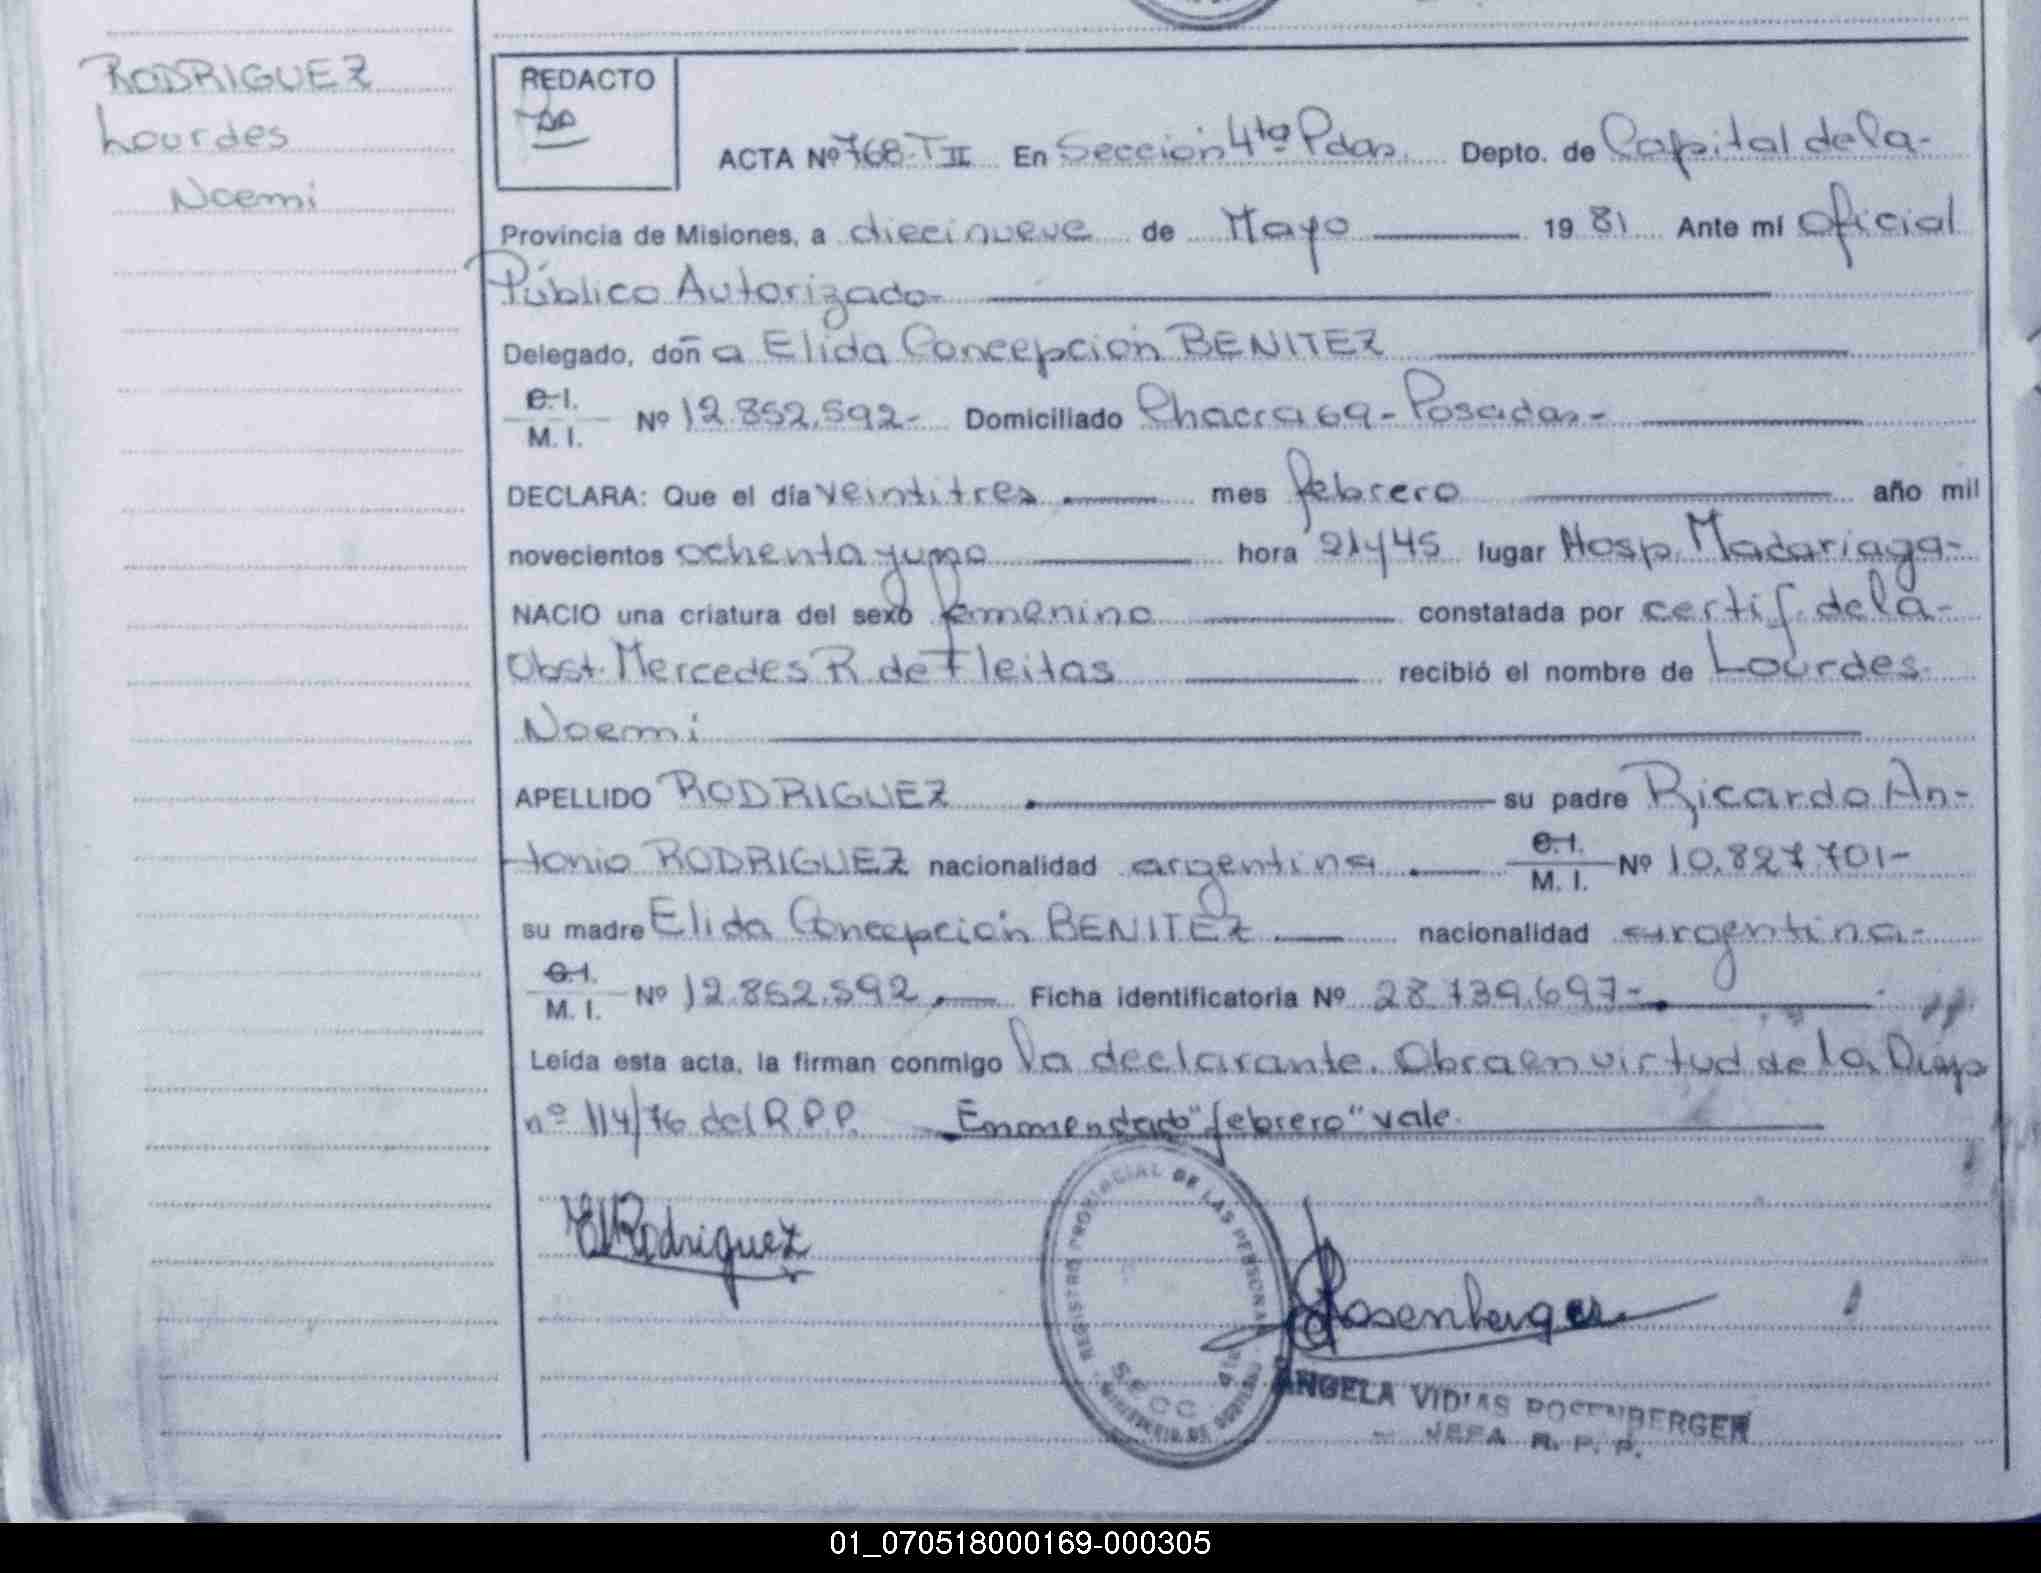 RODRIGUEZ
Lourdes
Noemi
REDACTO
ACTA Nº 768-T II En Sección 4ta Pdas. Depto. de Capital de la-
Provincia de Misiones, a diecinueve de Mayo 19 81 Ante mí Oficial
Público Autorizado-
Delegado, doña Elida Concepción BENITEZ
C.I.
M. I. Nº 12.852.592- Domiciliado Chacra 69 - Posadas-
DECLARA: Que el día veintitres mes febrero año mil
novecientos ochenta y uno hora 21 y 45 lugar Hosp. Madariaga-
NACIO una criatura del sexo femenino constatada por certif. de la-
Obst. Mercedes R. de Fleitas recibió el nombre de Lourdes
Noemi
APELLIDO RODRIGUEZ su padre Ricardo An-
tonio RODRIGUEZ nacionalidad argentina C.I.
M. I. Nº 10.827.701-
su madre Elida Concepción BENITEZ nacionalidad argentina-
C.I.
M. I. Nº 12.852.592 Ficha identificatoria Nº 28.739.697-
Leída esta acta, la firman conmigo la declarante. Obra en virtud de la Disp
nº 114/76 del R.P.P. Enmendado "febrero" vale.
Rodriguez
REGISTRO PROVINCIAL DE LAS PERSONAS
SECC. 4ta
MINISTERIO DE GOBIERNO
Rosenberger
ANGELA VIDIAS ROSENBERGER
- JEFA R. P. P.
01_070518000169-000305